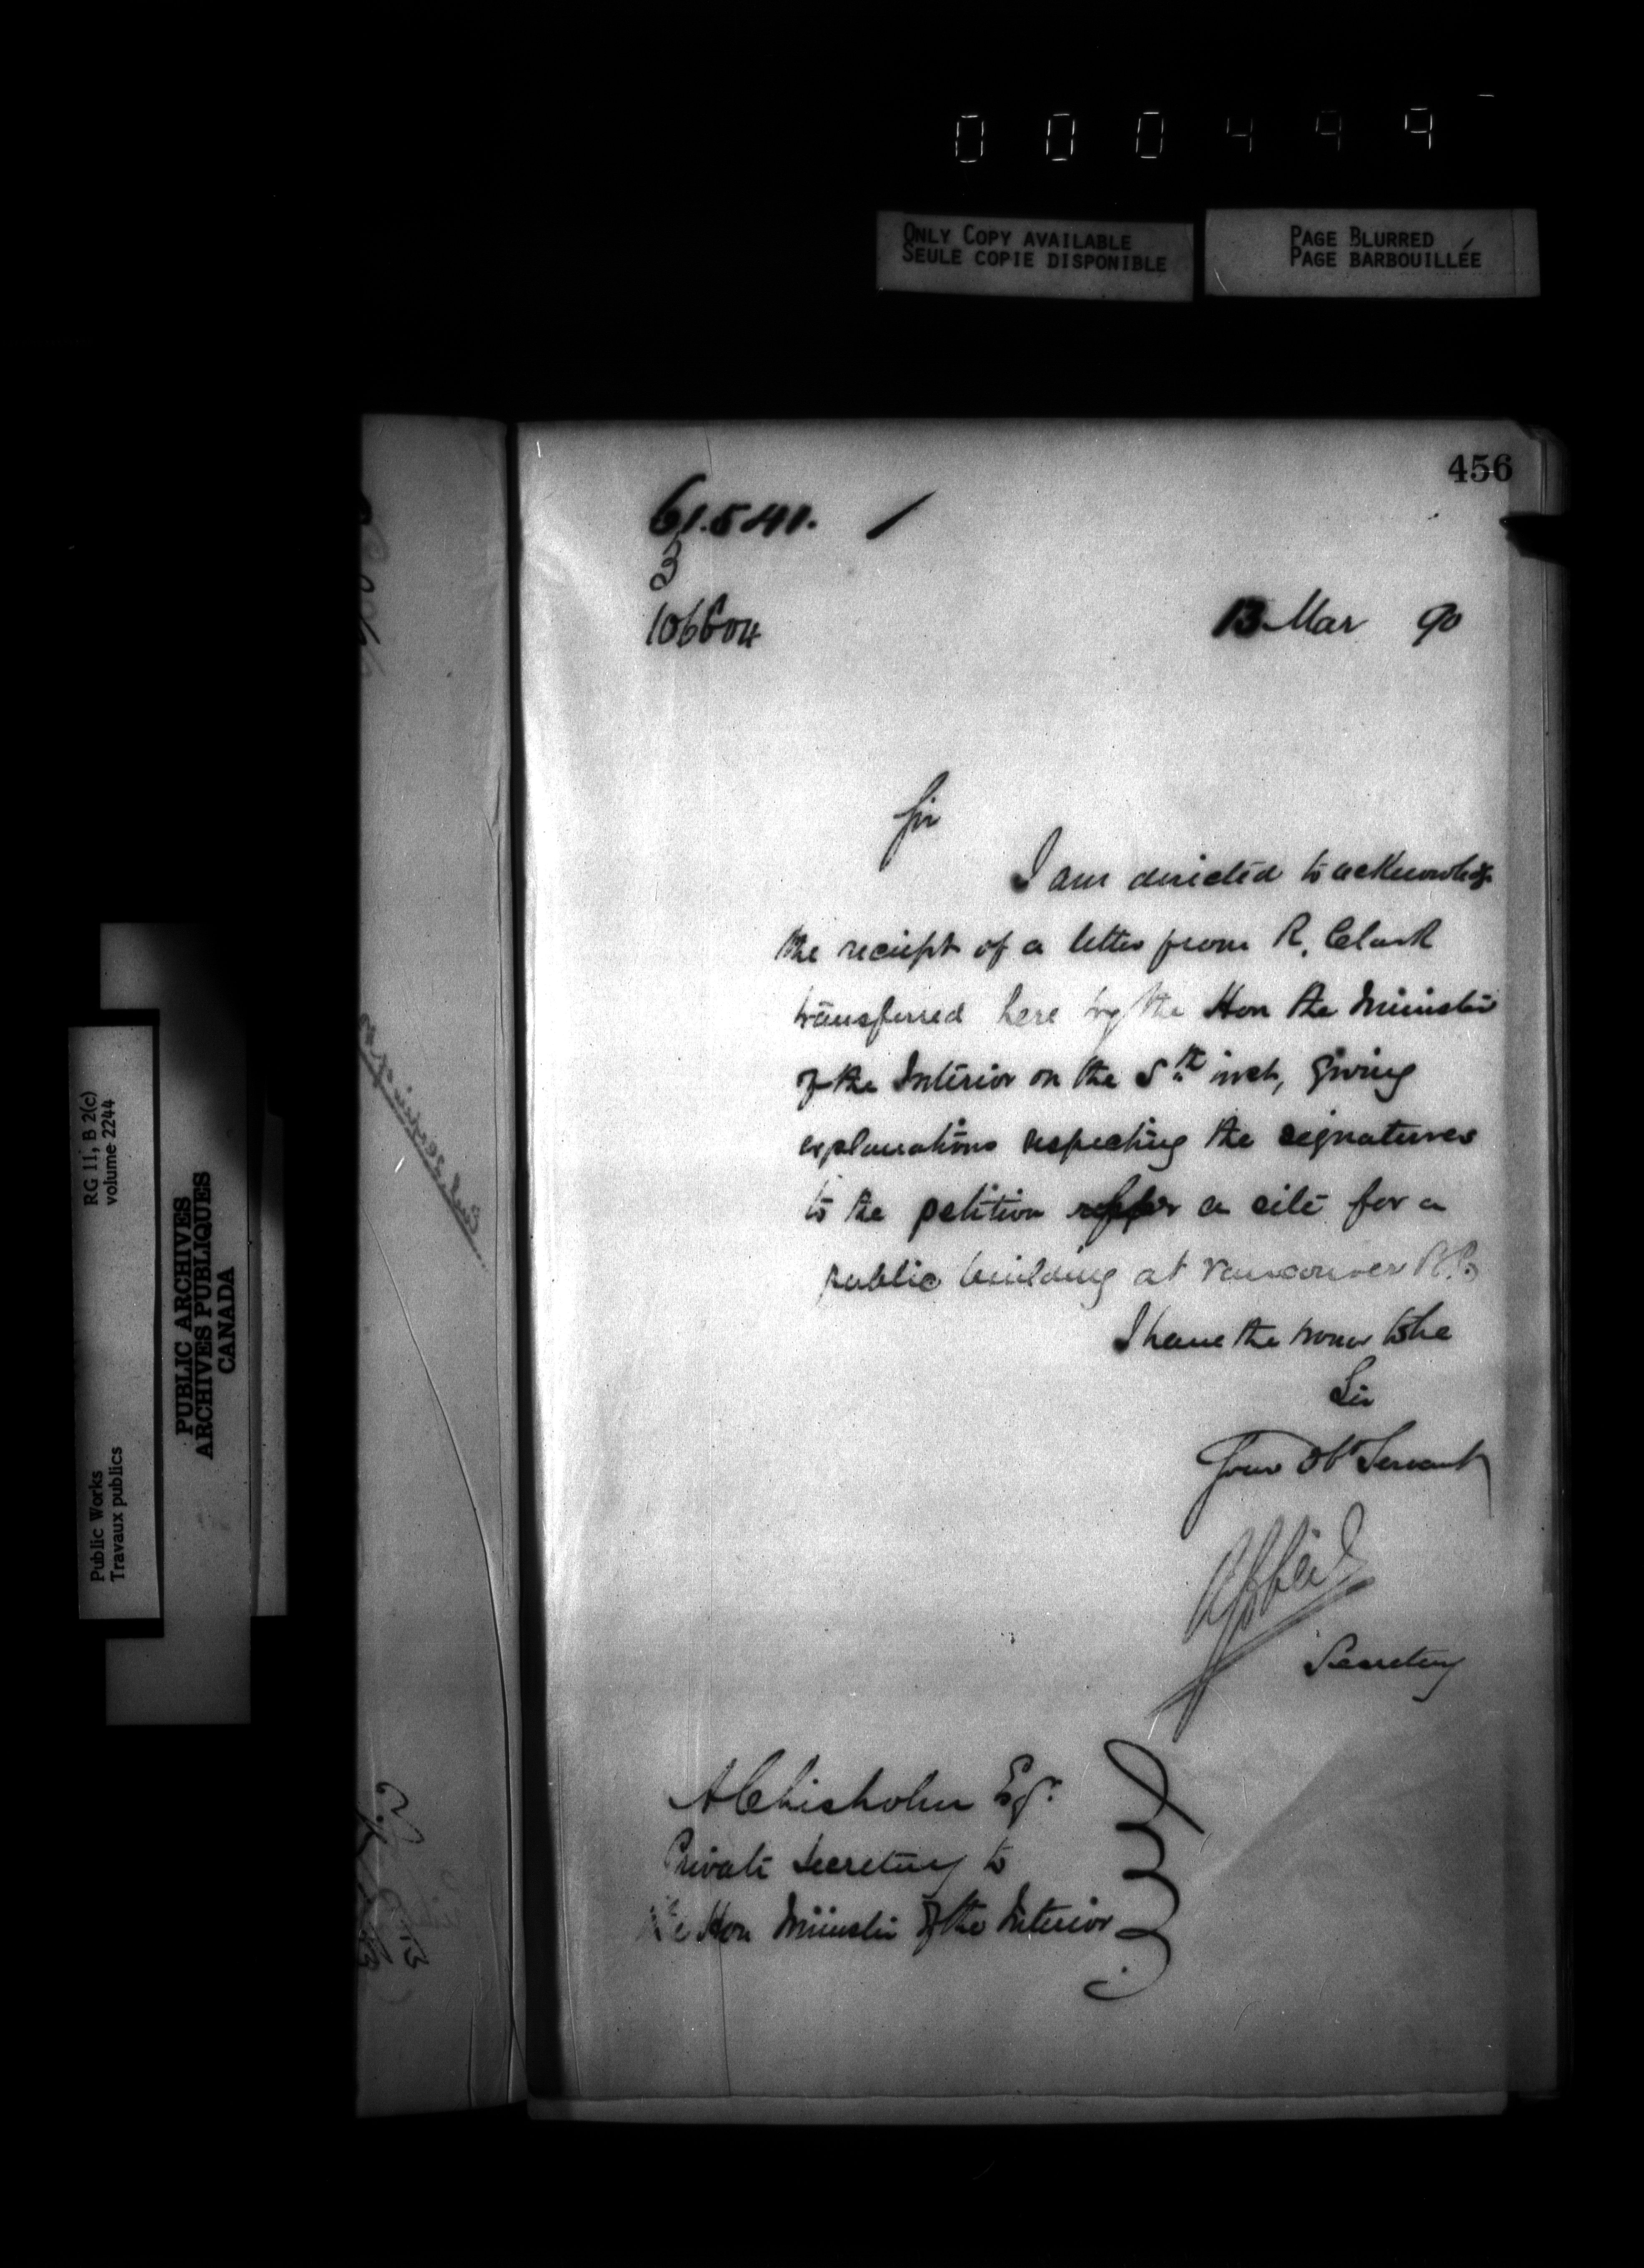 000499
ONLY COPY AVAILABLE
SEULE COPIE DISPONIBLE
PAGE BLURRED
PAGE BARBOUILLÉE
456
61.541.
3
106604
13 Mar 90
Sir
I am directed to acknowledge
the reciept of a letter from R. Clark
transferred here by the Hon the Minister
of the Interior on the 5th inst, giving
explanations respecting the signatures
to the petition for a site for a
public building at Vancouver B.C.
I have the honor to be
Sir
Your Obt Servant
Secretary
A Chisholm Esqr
Private Secretary to
the Hon Minister of the Interior
RG 11, B 2(c)
volume 2244
Public Works
Travaux publics
PUBLIC ARCHIVES
ARCHIVES PUBLIQUES
CANADA